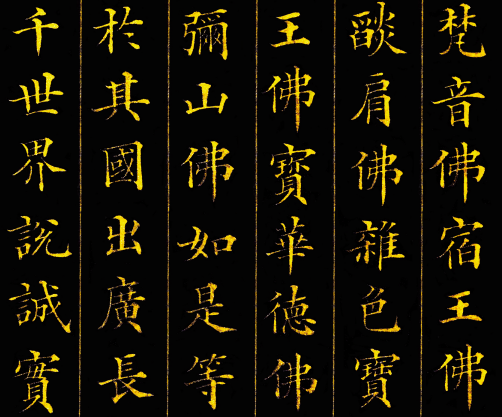 梵音佛宿王佛
燄肩佛雜色寶
王佛寶華德佛
彌山佛如是等
於其國出廣長
千世界說誠實